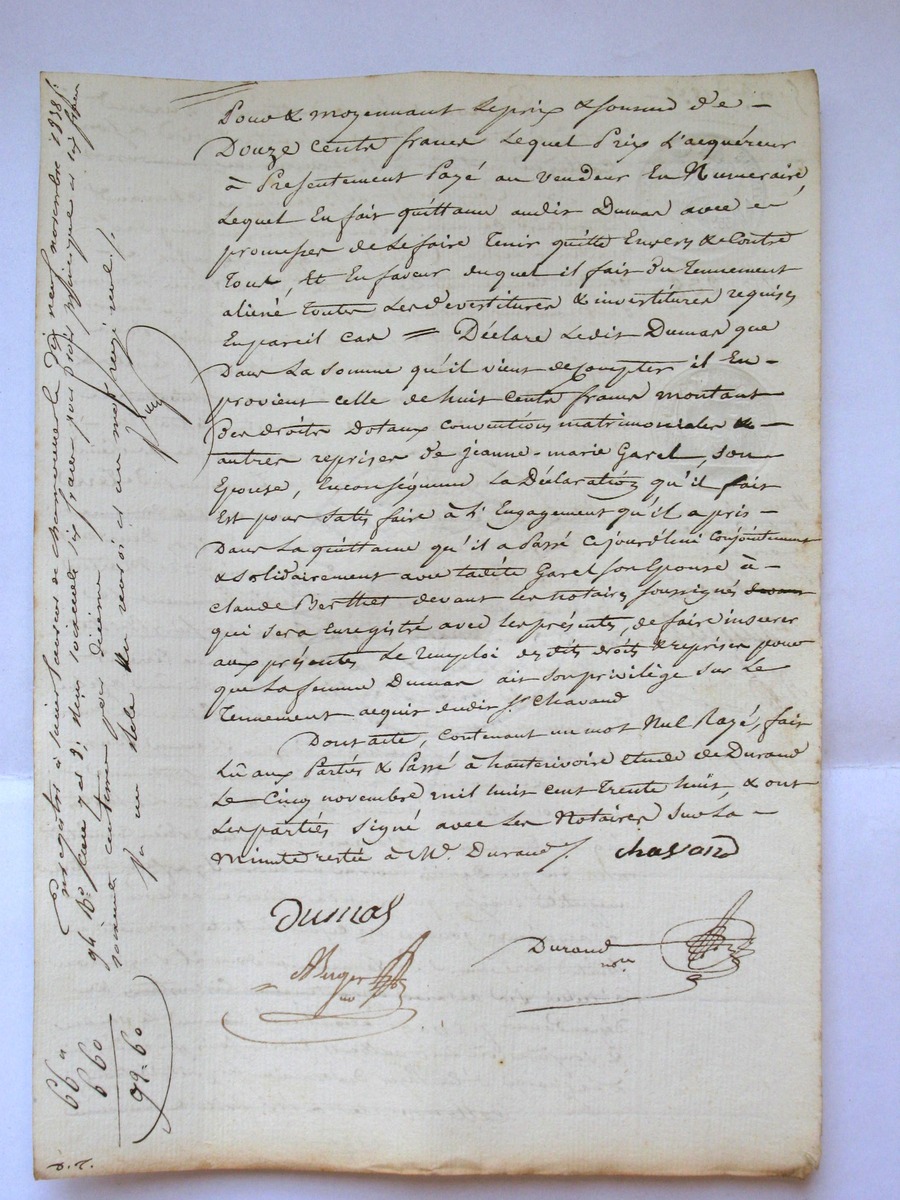 Pour & moyennant le prix & somme de —
Douze cents francs lequel Prix l'acquéreur
à Présentement Payé au vendeur En Numéraire
Lequel En fait quittance audit Dumas avec
promesses de le faire tenir quitte Envers & Contre
Tous, Et En faveur duquel il fait du Tennement
aliéné toutes les devestitures & investitures requises
En pareil cas = Déclare Ledit Dumas que
Dans La Somme qu'il vient de compter il En —
provient celle de huit cents francs montant
des droits Dotaux conventions matrimoniales & —
autres reprises de jeanne-marie Garel, son
Epouse, En conséquence La Déclaration qu'il fait
Est pour Satisfaire à L'Engagement qu'il a pris —
Dans La quittance qu'il a Passé cejourd'hui conjointement
& solidairement avec ladite Garel son Epouse à —
Claude Berthet devant les notaires soussignés
qui sera Enregistré avec les présentes, de faire insérer
aux présentes Le remploi desdits droits & reprises pour
que La femme Dumas ait son privilège sur Le
Tennement acquis dudit Sr. Chavand
Dont acte, contenant un mot Nul Rayé, fait
Lû aux Parties & Passé à hauterivoire étude de Durand
Le Cinq novembre mil huit cent trente huit, & ont
Les parties signé avec Les Notaires Sur La —
Minute restée à Me. Durand /. chavand
Dumas
Durand
nore
ABerger
no
Enregistré à Saint Laurent de chamousset le dix neuf novembre 1838 fo
94 Ro. Cases 7 et 8, reçu soixante six francs pour droit principal et six francs
soixante centimes pour dixième
66 "
6 60
99-60